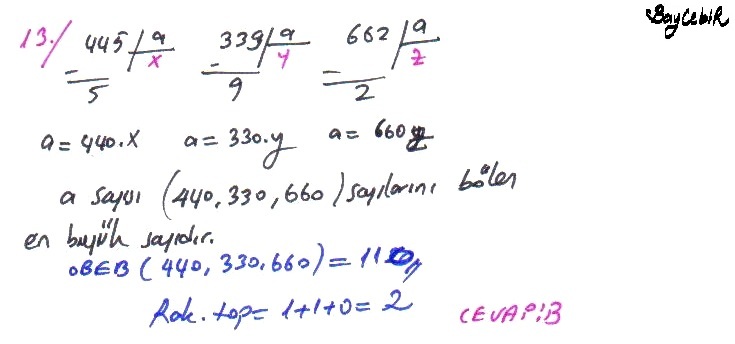 BayCebir
13./ 445 | a 339 | a 662 | a
- x - y - z
5 9 2
a = 440.x a = 330.y a = 660z
a sayısı (440, 330, 660) sayılarını bölen
en büyük sayıdır.
OBEB (440, 330, 660) = 110,,
Rak. top = 1+1+0 = 2 CEVAP:B